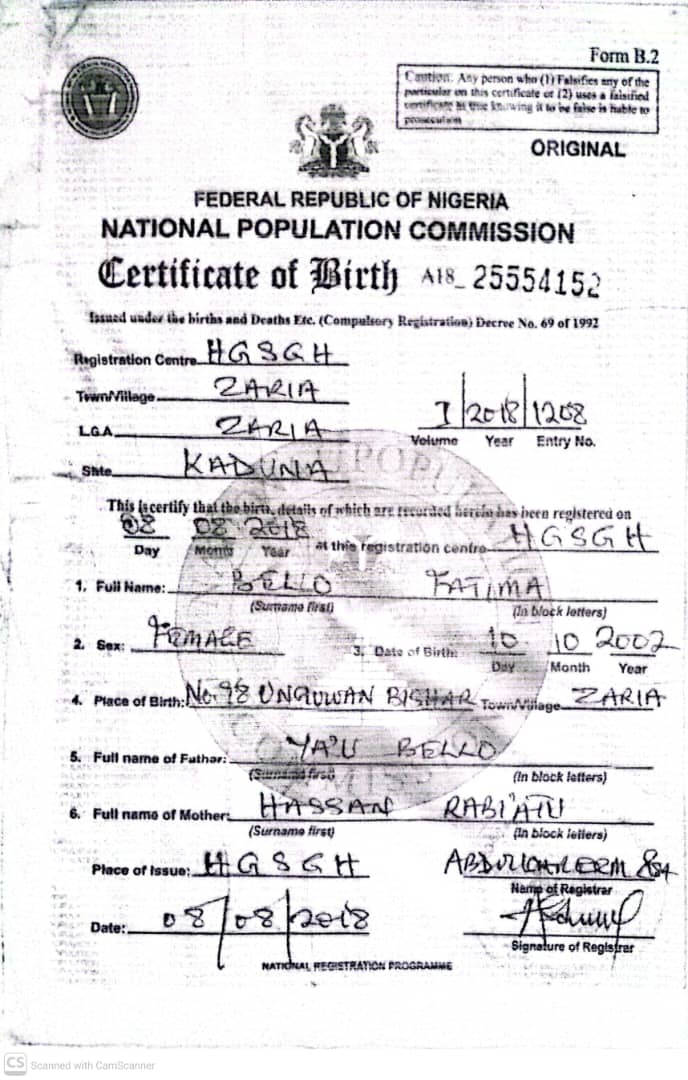 Form B.2
Caution: Any person who (1) Falsifies any of the
particular on this certificate or (2) uses a falsified
certificate as true knowing it to be false is liable to
prosecution
ORIGINAL
FEDERAL REPUBLIC OF NIGERIA
NATIONAL POPULATION COMMISSION
Certificate of Birth A18_25554152
Issued under the births and Deaths Etc. (Compulsory Registration) Decree No. 69 of 1992
Registration Centre HGSGH
Town/Village ZARIA
L.G.A. ZARIA
I 2018 1208
Volume Year Entry No.
State KADUNA
This is certify that the birth, details of which are recorded herein has been registered on
08 08 2018 at this registration centre HGSGH
Day Month Year
1. Full Name: BELLO FATIMA
(Surname first) (In block letters)
2. Sex: FEMALE 3. Date of Birth: 10 10 2002
Day Month Year
4. Place of Birth: No. 98 UNGUWAN BISHAR Town/Village ZARIA
5. Full name of Father: YA'U BELLO
(Surname first) (In block letters)
6. Full name of Mother: HASSAN RABI'ATU
(Surname first) (In block letters)
Place of Issue: HGSGH
Name of Registrar
Date: 08/08/2018
Signature of Registrar
NATIONAL REGISTRATION PROGRAMME
CS Scanned with CamScanner